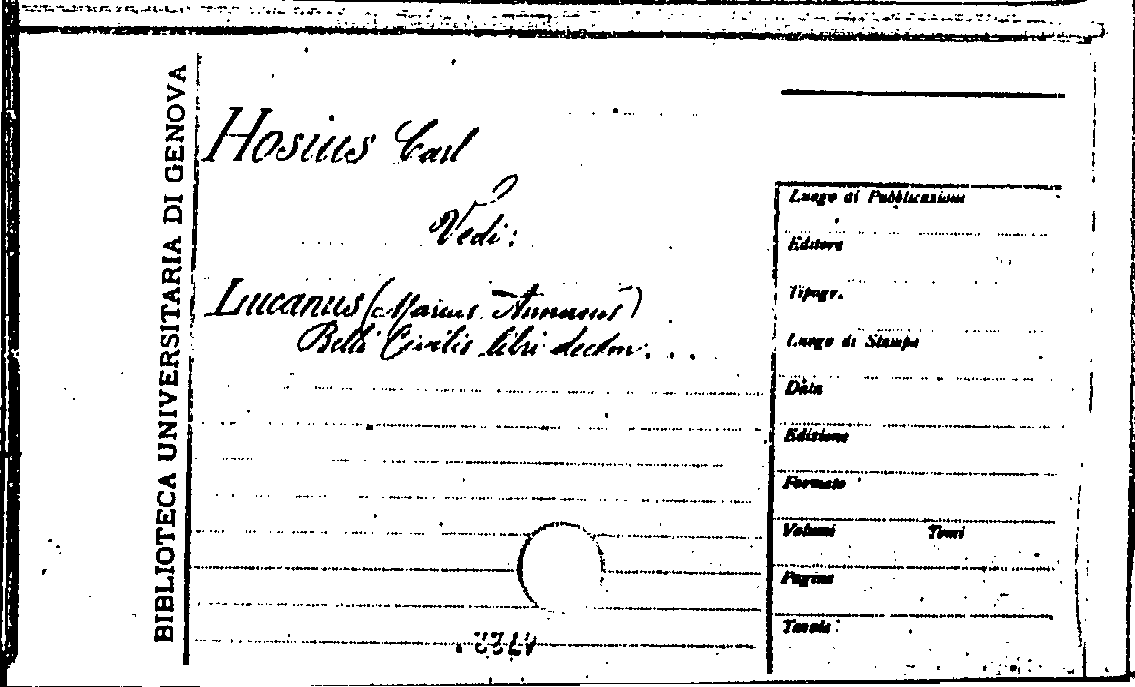 BIBLIOTECA UNIVERSITARIA DI GENOVA
Hosius Carl
Vedi:
Lucanus (Marcus Annaeus)
Belli Civilis libri decem...
Luogo di Pubblicazione
Editore
Tipogr.
Luogo di Stampa
Data
Edizione
Formato
Volumi Tomi
Pagine
Tavole